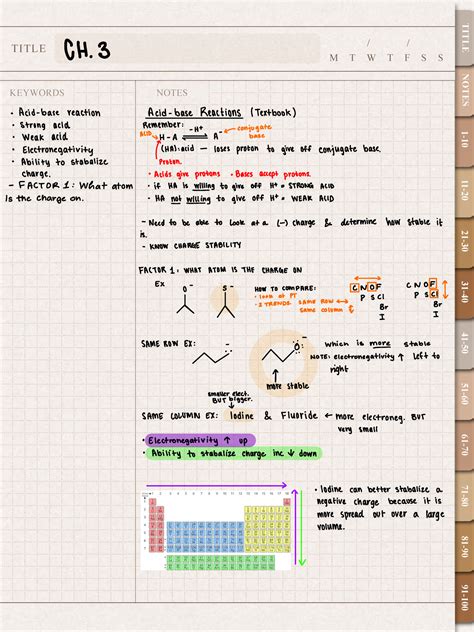 TITLE CH. 3
/ /
M T W T F S S
KEYWORDS
• Acid-base reaction
• Strong acid
• Weak acid
• Electronegativity
• Ability to stabalize
charge.
- FACTOR 1: What atom
is the charge on.
NOTES
Acid-base Reactions (Textbook)
Remember:
ACID H-A -H⁺ A⁻ conjugate
base
(HA): acid — loses proton to give off conjugate base.
Proton.
• Acids give protons • Bases accept protons.
• if HA is willing to give off H⁺ = STRONG ACID
• HA not willing to give off H⁺ = WEAK ACID
- Need to be able to look at a (-) charge & determine how stable it
is.
- KNOW CHARGE STABILITY
FACTOR 1: WHAT ATOM IS THE CHARGE ON
EX
O⁻ S⁻
HOW TO COMPARE:
• look at PT
• 2 TRENDS: SAME ROW ↔
Same column ↕
C N O F
P S Cl
Br
I
C N O F
P S Cl
Br
I
SAME ROW EX:
O
which is more stable
NOTE: electronegativity ↑ left to
right
more stable
smaller elect.
BUT bigger.
SAME COLUMN EX: Iodine & Fluoride ← more electroneg. BUT
very small
• Electronegativity ↑ up
• Ability to stabalize charge inc ↓ down
• Iodine can better stabalize a
negative charge because it is
more spread out over a large
volume.
TITLE
NOTES
1-10
11-20
21-30
31-40
41-50
51-60
61-70
71-80
81-90
91-100